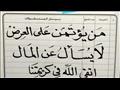 من يؤتمن على العرض
لا يسأل عن المال
اتقي الله في كرمتنا